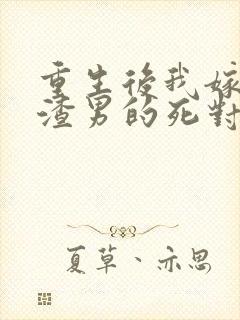 重生後我嫁
渣男的死對
夏草、亦思